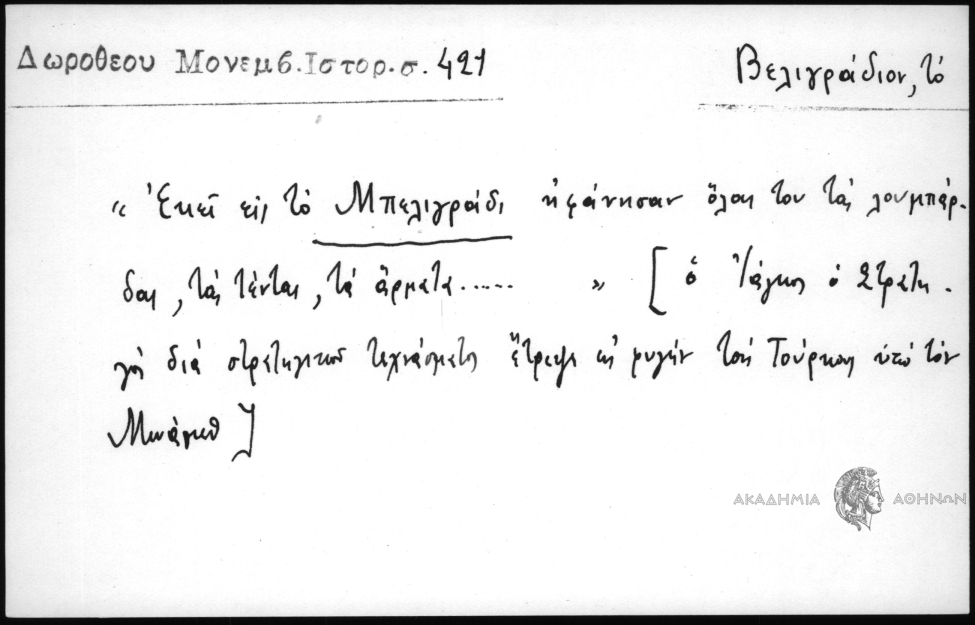 Δωροθεου Μονεμβ.Ιστορ.σ. 421
Βελιγράδιον, τὸ
« Ἐκεῖ εἰς τὸ Μπελιγράδι ἠφάνησαν ὅλαις του ταὶς λουμπάρ-
δαις, ταὶς τένταις, τὰ ἄρματα...... » [ ὁ Ἰάγκος ὁ Στρατη-
γὸς διὰ στρατηγικοῦ τεχνάσματος ἔτρεψε εἰς φυγὴν τοὺς Τούρκους ὑπὸ τὸν
]
ΑΚΑΔΗΜΙΑ ΑΘΗΝΩΝ